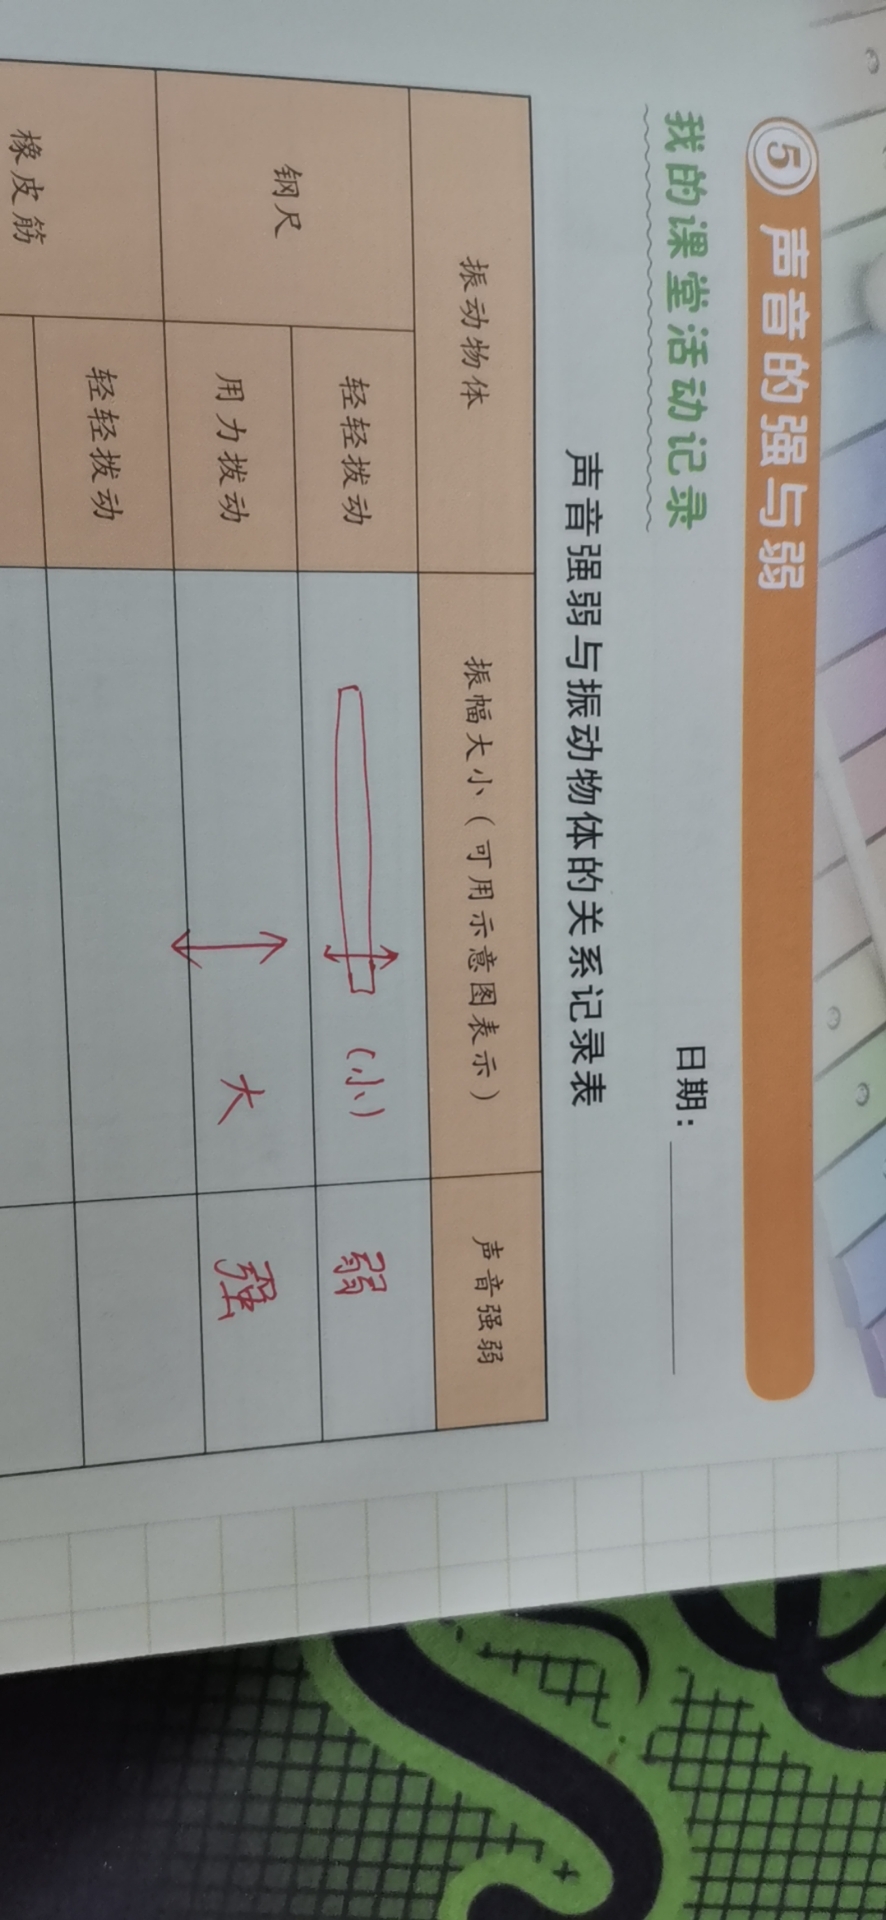 5 声音的强与弱
我的课堂活动记录
日期：
声音强弱与振动物体的关系记录表
振动物体 振幅大小（可用示意图表示） 声音强弱
钢尺 轻轻拨动 （小） 弱
用力拨动 大 强
橡皮筋 轻轻拨动